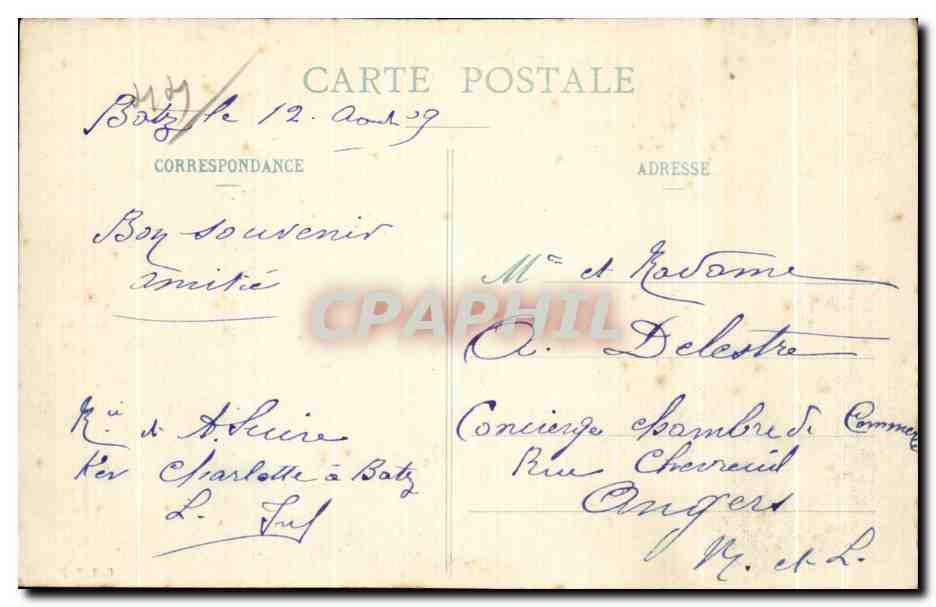 CARTE POSTALE
Batz le 12. Aout 09
CORRESPONDANCE
ADRESSE
Bon souvenir
amitié
Mr et Madame
A. Delestre
Concierge chambre de Commerce
Rue Chevreul
Angers
M. et L.
et A. Suire
Ker Charlotte à Batz
L. Inf
CPAPHIL